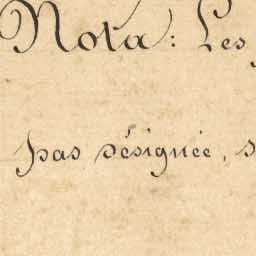 Nota: Les
pas désignée, s